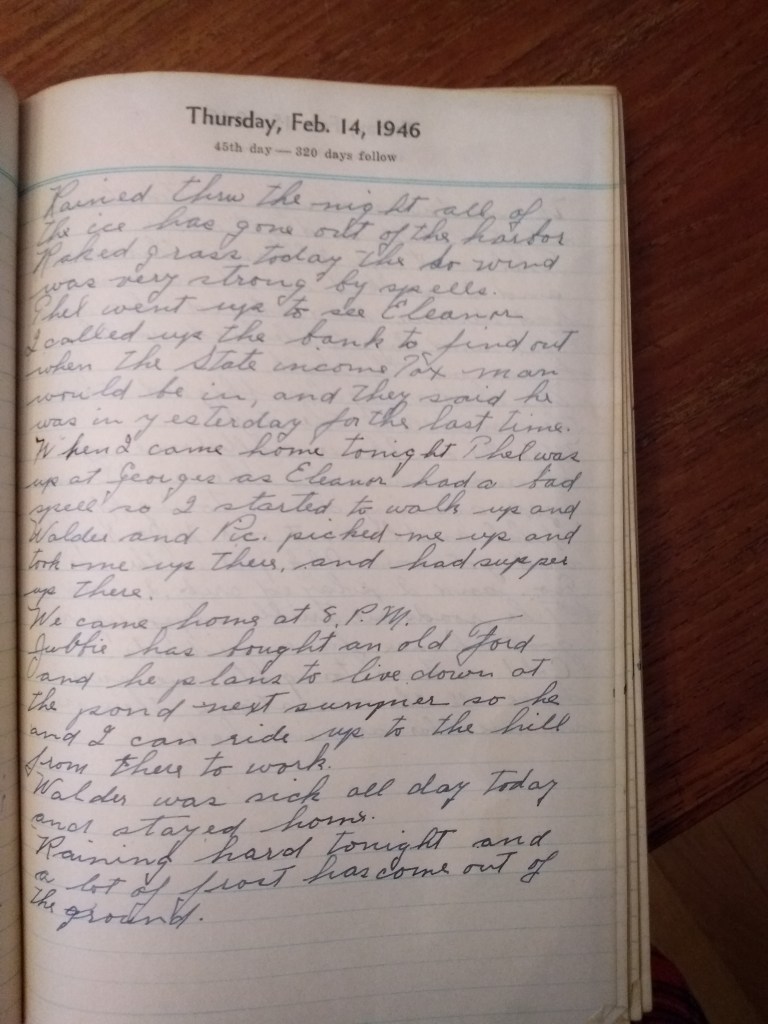 Thursday, Feb. 14, 1946
45th day — 320 days follow
Rained thru the night all of
the ice has gone out of the harbor
Raked grass today the so wind
was very strong by spells.
Phel went up to see Eleanor
I called up the bank to find out
when the State income Tax man
would be in, and they said he
was in yesterday for the last time.
When I came home tonight Phel was
up at Georges as Eleanor had a bad
spell so I started to walk up and
Walder and Pic. picked me up and
took me up there, and had supper
up there.
We came home at 8. P.M.
has bought an old Ford
and he plans to live down at
the pond next summer so he
and I can ride up to the hill
from there to work.
Walder was sick all day today
and stayed home.
Raining hard tonight and
a lot of frost has come out of
the ground.